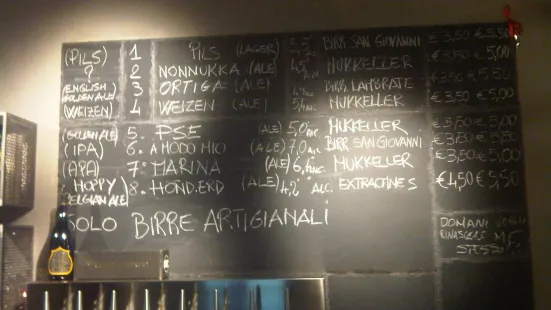 (PILS) 1 PILS (LAGER) 5,5 BIRR. SAN GIOVANNI € 3,50 € 5,50
? 2 NONNUKKA (ALE) 4,5 MUKKELLER € 3,50 € 5,00
(ENGLISH GOLDEN ALE) 3 ORTIGA (ALE) BIRR. LAMBRATE € 3,50 € 5,50
(WEIZEN) 4 WEIZEN (ALE) MUKKELLER € 3,50 € 5,00
(GOLDEN ALE) 5. PSE (ALE) 5,0 ALC. MUKKELLER € 3,50 € 5,00
(IPA) 6. A MODO MIO (ALE) 7,0 ALC. BIRR SAN GIOVANNI € 3,50 € 5,50
(APA) 7° MARINA (ALE) 6, ALC. MUKKELLER € 3,50 € 5,00
(HOPPY BELGIAN ALE) 8. HOND.ERD (ALE) 4,2 ALC. EXTRAOMNES € 4,50 € 5,50
SOLO BIRRE ARTIGIANALI
DOMANI